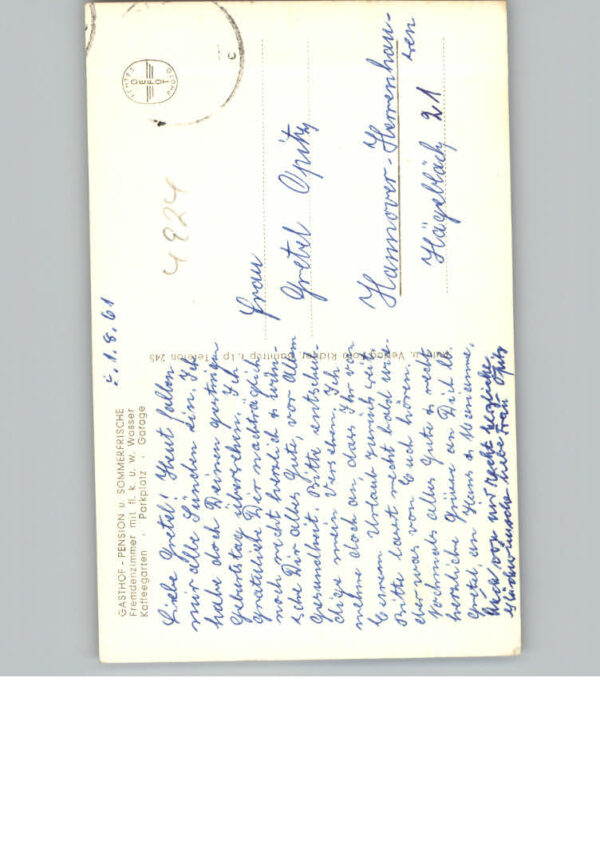 GASTHOF - PENSION u. SOMMERFRISCHE
Fremdenzimmer mit fl. k. u. w. Wasser
Kaffeegarten · Parkplatz · Garage
z. 1. 8. 61
Liebe Gretel! Heut fallen
mir alle Sünden ein. Ich
habe doch Deinen gestrigen
Geburtstag übersehen. Ich
gratuliere Dir nachträglich
noch recht herzlich u. wün-
sche Dir alles Gute, vor allem
Gesundheit. Bitte entschul-
dige mein Versehen. Ich
nehme doch an, dass Ihr von
Eurem Urlaub zurück seit.
Bitte lasst recht bald wie-
der was von Euch hören.
Nochmals alles Gute u. recht
herzliche Grüsse an Dich lb.
Gretel, an Hans u.
Auch von mir recht herzliche
liebe Frau Opitz
u. Verlag Foto Telefon 245
4924
Frau
Gretel Opitz
Hannover-Herrenhau-
sen
21
ECHTES PHOTO
DEFOT